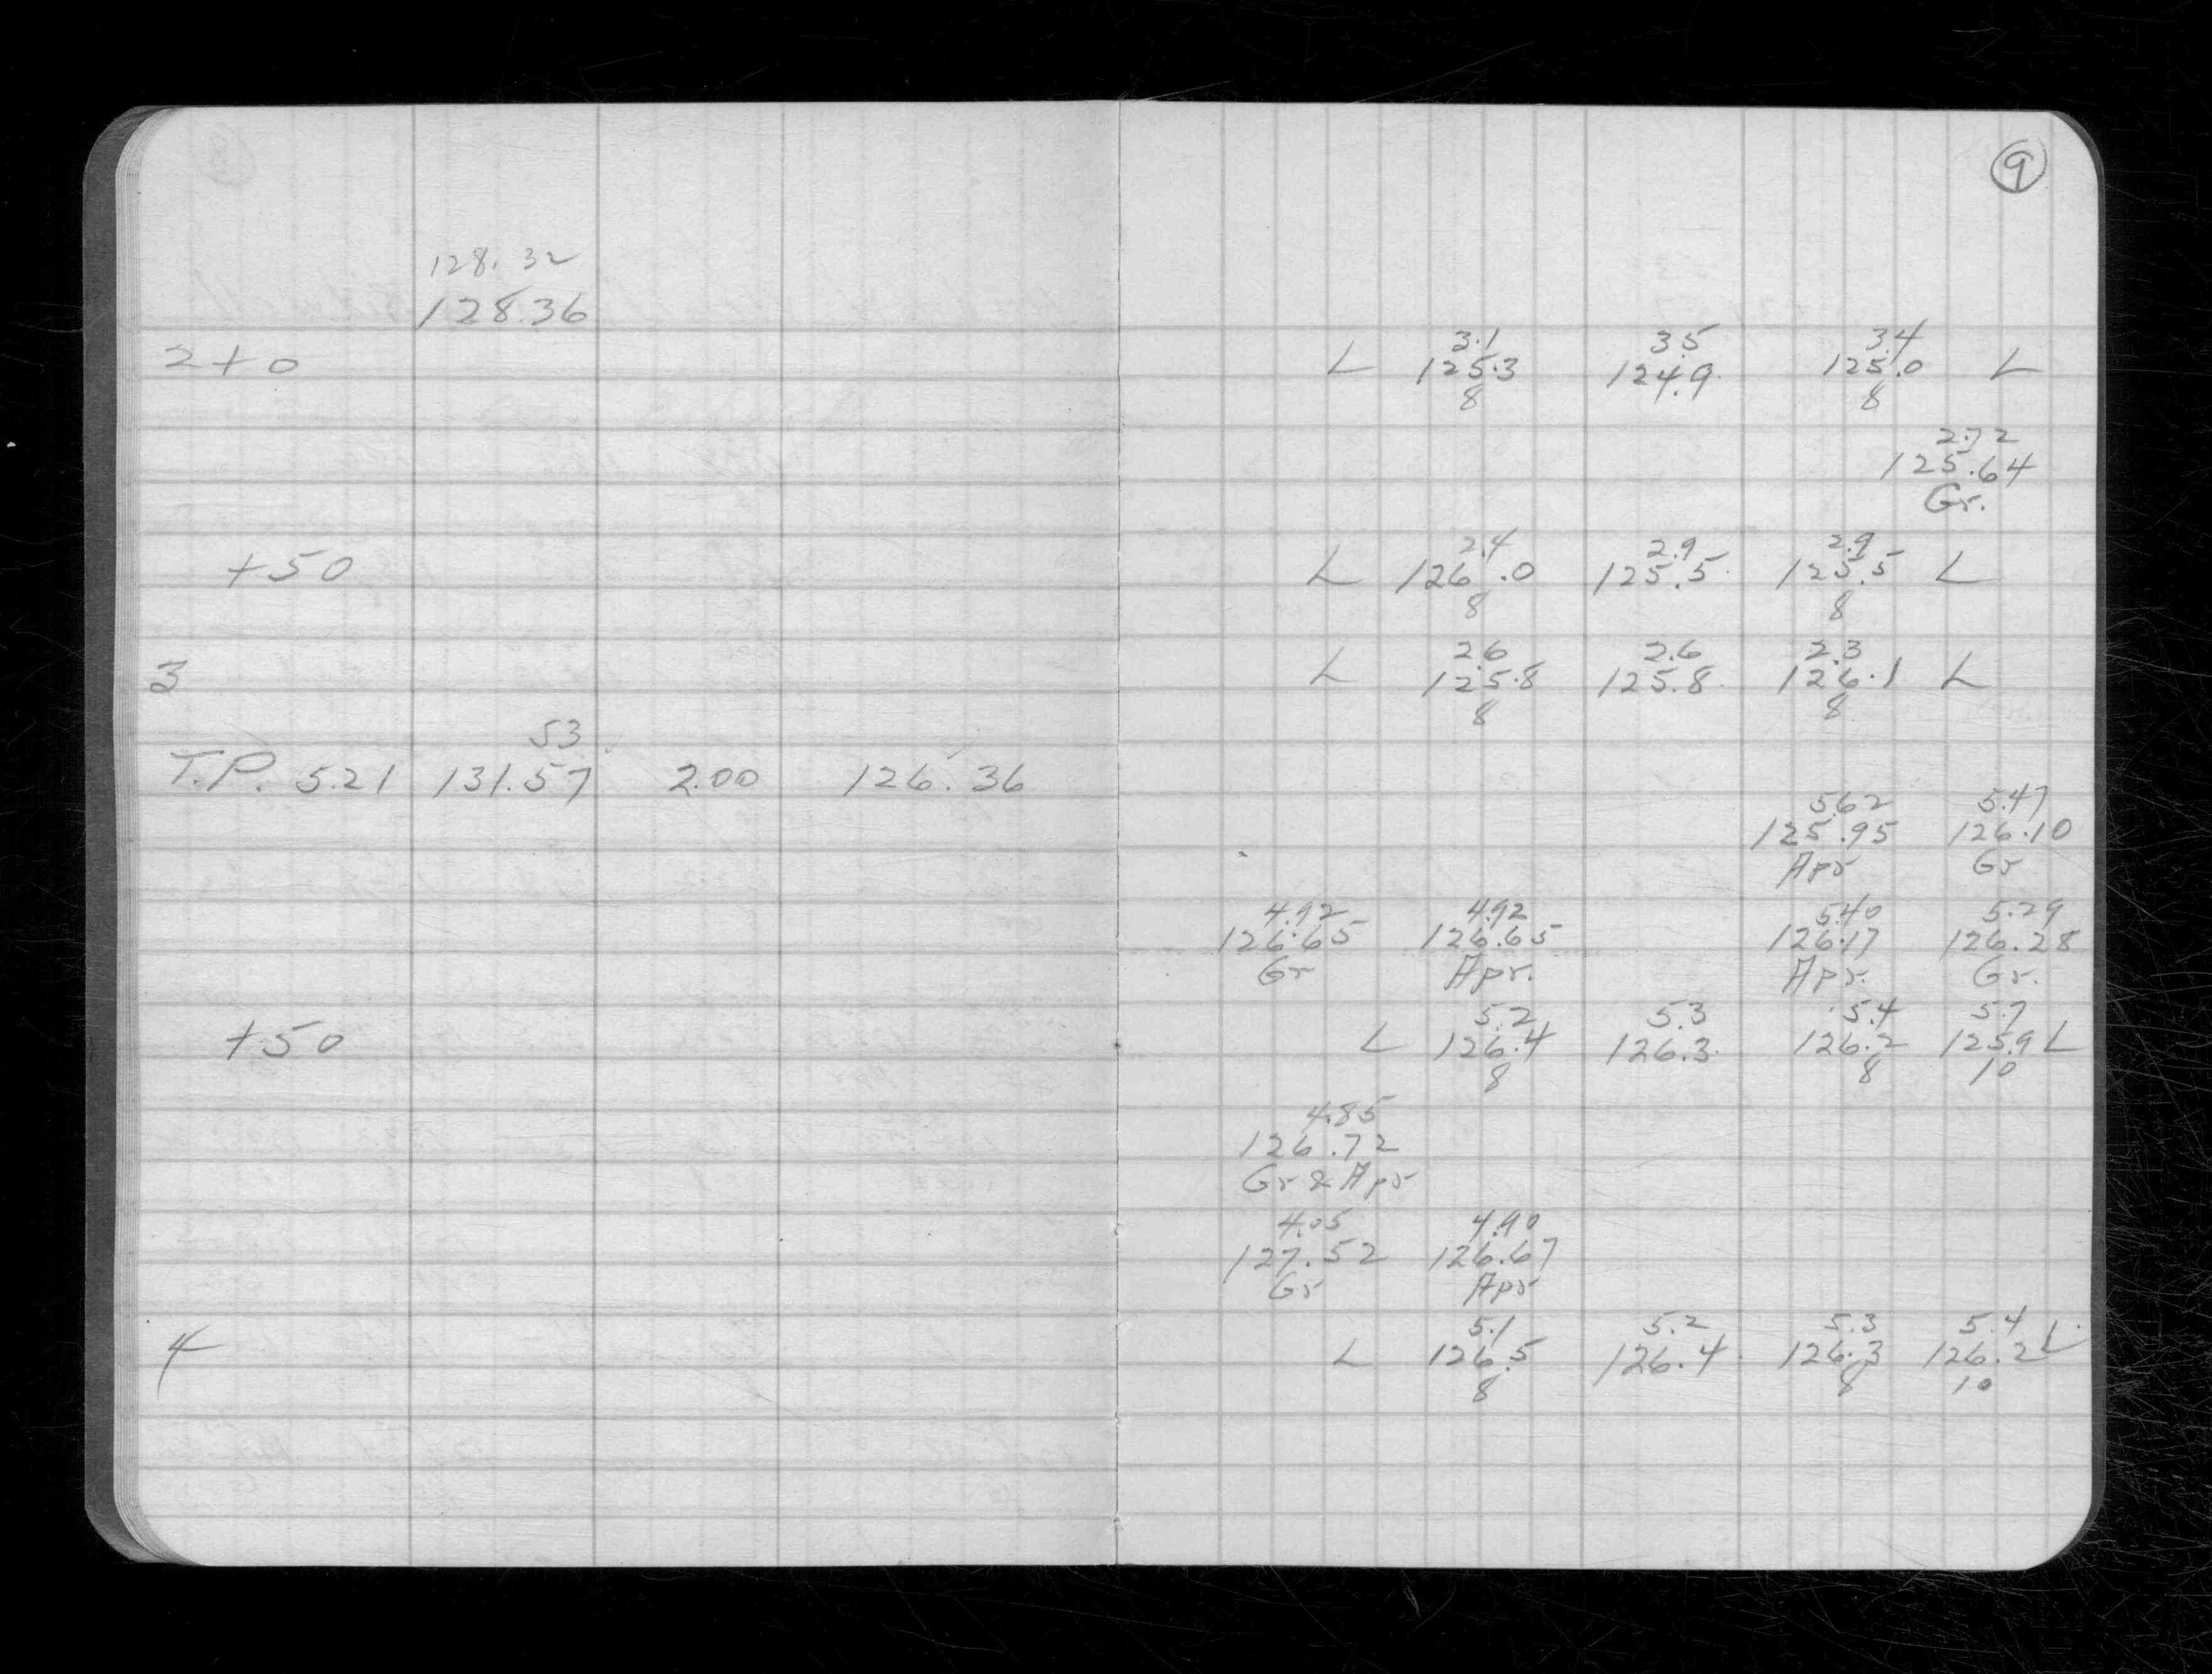 9
128.32
128.36
3.1 3.5 3.4
2+0 L 125.3 124.9 125.0 L
8 8
2.72
125.64
Gr.
2.4 2.9 2.9
+50 L 126.0 125.5 125.5 L
8 8
2.6 2.6 2.3
3 L 125.8 125.8 126.1 L
8 8
53
T.P. 5.21 131.57 2.00 126.36
5.62 5.47
125.95 126.10
Apr Gr
4.92 4.92 5.40 5.29
126.65 126.65 126.17 126.28
Gr Apr. Apr. Gr.
5.2 5.3 5.4 5.7
+50 L 126.4 126.3 126.2 125.9 L
8 8 10
4.85
126.72
Gr & Apr
4.05 4.90
127.52 126.67
Gr Apr
5.1 5.2 5.3 5.4
4 L 126.5 126.4 126.3 126.2 L
8 8 10